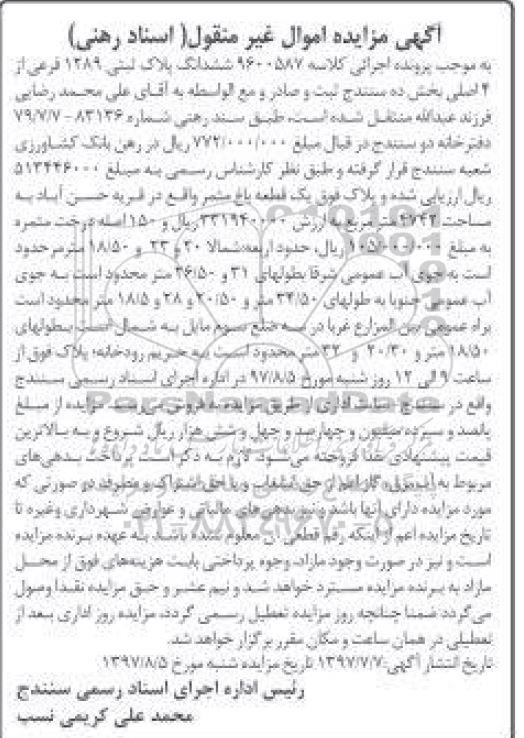 آگهی مزایده اموال غیر منقول( اسناد رهنی)
به موجب پرونده اجرائی کلاسه ۹۶۰۰۵۸۷ ششدانگ پلاک ثبتی ۱۲۸۹ فرعی از
۴ اصلی بخش ده سنندج ثبت و صادر و مع الواسطه به آقای علی محمد رضایی
فرزند عبدالله منتقل شده است، طبق سند رهنی شماره ۸۳۱۳۶ - ۷۹/۷/۷
دفترخانه دو سنندج در قبال مبلغ ۷۷۲/۰۰۰/۰۰۰ ریال در رهن بانک کشاورزی
شعبه سنندج قرار گرفته و طبق نظر کارشناس رسمی به مبلغ ۵۱۳۴۴۶۰۰۰
ریال ارزیابی شده و پلاک فوق یک قطعه باغ مثمر واقع در قریه حسن آباد به
مساحت ۴۷۴۲ متر مربع به ارزش ۳۳۱۹۴۰۰۰۰ ریال و ۱۵۰ اصله درخت مثمره
به مبلغ ۱۰۵/۰۰۰/۰۰۰ ریال، حدود اربعه:شمالا ۲۰ و ۲۳ و ۱۸/۵۰ مترمرحدود
است به جوی آب عمومی شرقا بطولهای ۳۱ و ۲۶/۵۰ متر محدود است به جوی
آب عمومی جنوبا به طولهای ۳۴/۵۰ متر و ۲۰/۵۰ و ۲۸ و ۱۸/۵ متر محدود است
براه عمومی بین المزارع غربا در سه ضلع سوم مایل به شمال است بطولهای
۱۸/۵۰ متر و ۲۰/۳۰ و ۳۲ متر محدود است به حریم رودخانه؛ پلاک فوق از
ساعت ۹ الی ۱۲ روز شنبه مورخ ۹۷/۸/۵ در اداره اجرای اسناد رسمی سنندج
واقع در سنندج از طریق مزایده به فروش می‌رسد. مزایده از مبلغ
پانصد و سیزده میلیون و چهارصد و چهل و شش هزار ریال شروع و به بالاترین
قیمت پیشنهادی نقدا فروخته می‌شود. لازم به ذکر است پرداخت بدهی‌های
مربوط به آب،برق، گاز اعم از حق انشعاب و یا حق اشتراک و مصرف در صورتی که
مورد مزایده دارای آنها باشد و نیز بدهی‌های مالیاتی و عوارض شهرداری وغیره تا
تاریخ مزایده اعم از اینکه رقم قطعی آن معلوم شده باشد به عهده برنده مزایده
است و نیز در صورت وجود مازاد، وجوه پرداختی بابت هزینه‌های فوق از محل
مازاد به برنده مزایده مسترد خواهد شد و نیم عشر و حق مزایده نقدا وصول
می‌گردد ضمنا چنانچه روز مزایده تعطیل رسمی گردد، مزایده روز اداری بعد از
تعطیلی در همان ساعت و مکان مقرر برگزار خواهد شد.
تاریخ انتشار آگهی:۱۳۹۷/۷/۷ تاریخ مزایده شنبه مورخ ۱۳۹۷/۸/۵
رئیس اداره اجرای اسناد رسمی سنندج
محمد علی کریمی نسب
ParsNamadData
۰۲۱-۸۸۳۴۹۶۷۰-۵